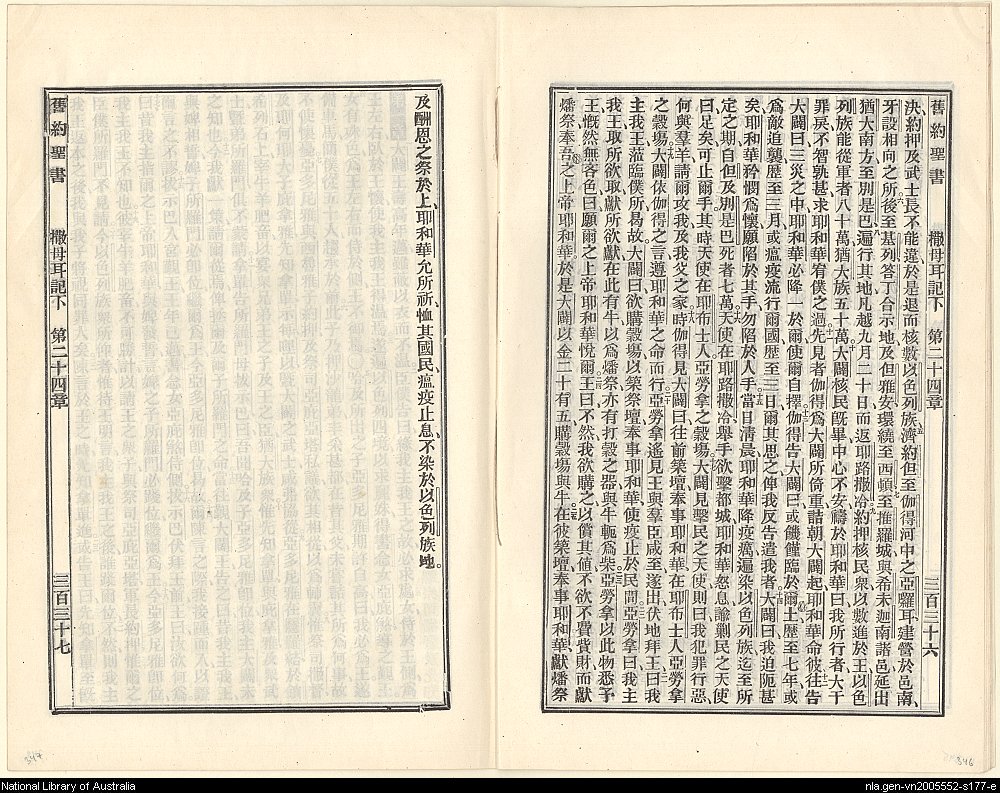 舊約聖書 撒母耳記下 第二十四章 三百三十六
決、約押及武士長不能違於是退而核數以色列族濟約但至伽得河中之亞囉耳建營於邑南、
牙設相向之所後至基列答丁合示地及但雅安環繞至西頓至推羅城與希未迦南諸邑延出
猶大南方至別是巴遍行其地凡越九月二十日而返耶路撒冷約押核民衆以數進於王以色
列族能從軍者八十萬猶大族五十萬大闢核民旣畢中心不安禱於耶和華曰我所行者大干
罪戾不智孰甚求耶和華宥僕之過先見者伽得爲大闢所倚重詰朝大闢起耶和華命彼往告
大闢曰三災之中耶和華必降一於爾使爾自擇伽得告大闢曰或饑饉臨於爾土歷至七年或
爲敵追襲歷至三月或瘟疫流行爾國歷至三日爾其思之俾我反告遣我者大闢曰我迫阨甚
矣耶和華矜憫爲懷願陷於其手勿陷於人手當日淸晨耶和華降疫癘遍染以色列族迄至所
定之期自但及別是巴死者七萬天使在耶路撒冷舉手欲擊都城耶和華怒息諭劋民之天使
曰足矣可止爾手其時天使在耶布士人亞勞拿之穀塲大闢見擊民之天使則曰我犯罪行惡
何與羣羊請爾攻我及我父之家時伽得見大闢曰往前築壇奉事耶和華在耶布士人亞勞拿
之穀塲大闢依伽得之言遵耶和華之命而行亞勞拿遙見王與羣臣咸至遂出伏地拜王曰我
主我王蒞臨僕所曷故大闢曰欲購穀塲以築祭壇奉事耶和華使疫止於民間亞勞拿曰我主
我王取所欲取獻所欲獻在此有牛以爲燔祭亦有打穀之器與牛軛爲柴亞勞拿以此物悉予
王慨然無吝色曰願爾之上帝耶和華悅爾王曰不然我欲購之以償其值不欲不費貲財而獻
燔祭奉吾之上帝耶和華於是大闢以金二十有五購穀塲與牛在彼築壇奉事耶和華獻燔祭
及酬恩之祭於上耶和華允所祈恤其國民瘟疫止息不染於以色列族地。
舊約聖書 撒母耳記下 第二十四章 三百三十七
347
346
National Library of Australia
nla.gen-vn2005552-s177-e